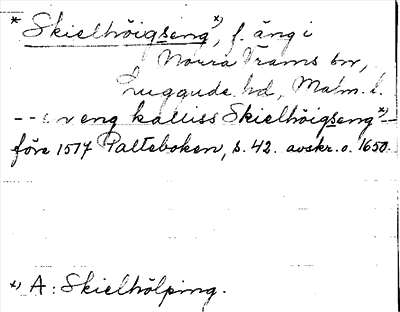 * Skielhöigseng *), f. äng i
Norra Vrams sn,
Luggude hd, Malm. l.
-- en eng kalliss Skielhöigseng *) --
före 1517 Palteboken, s. 42. avskr. o. 1650.
*) A: Skielhölping.